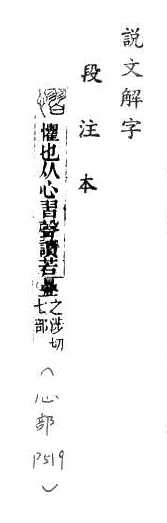 說文解字
段注本
慴 懼也从心習聲讀若疊 之涉切
七部
(心部
P519)